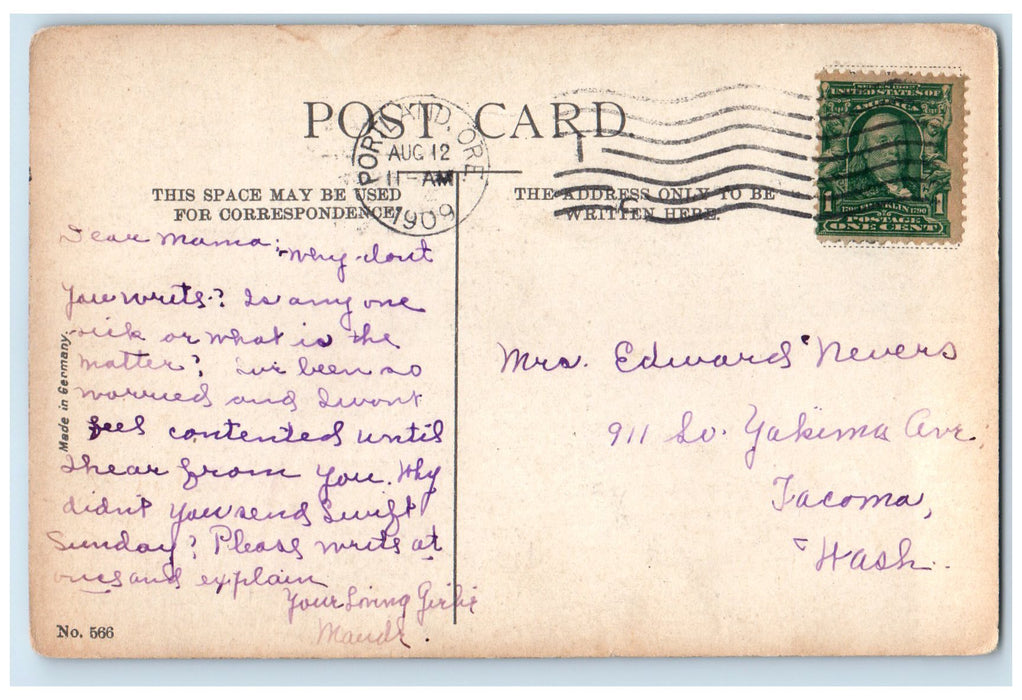 POST CARD.
PORTLAND, ORE.
AUG 12
11-AM
1909
SERIES 1902
UNITED STATES OF
AMERICA
1 1
1706 FRANKLIN 1790
POSTAGE
ONE CENT
THIS SPACE MAY BE USED
FOR CORRESPONDENCE.
THE ADDRESS ONLY TO BE
WRITTEN HERE.
Dear Mama;
Why dont
you write? Is any one
sick or what is the
matter? Ive been so
worried and I wont
feel contented until
I hear from you. Why
didn't you send Swift
Sunday? Please write at
once and explain
Your Loving Girlie
Maude.
Mrs. Edward Nevers
911 So. Yakima Ave,
Tacoma,
Wash.
Made in Germany.
No. 566